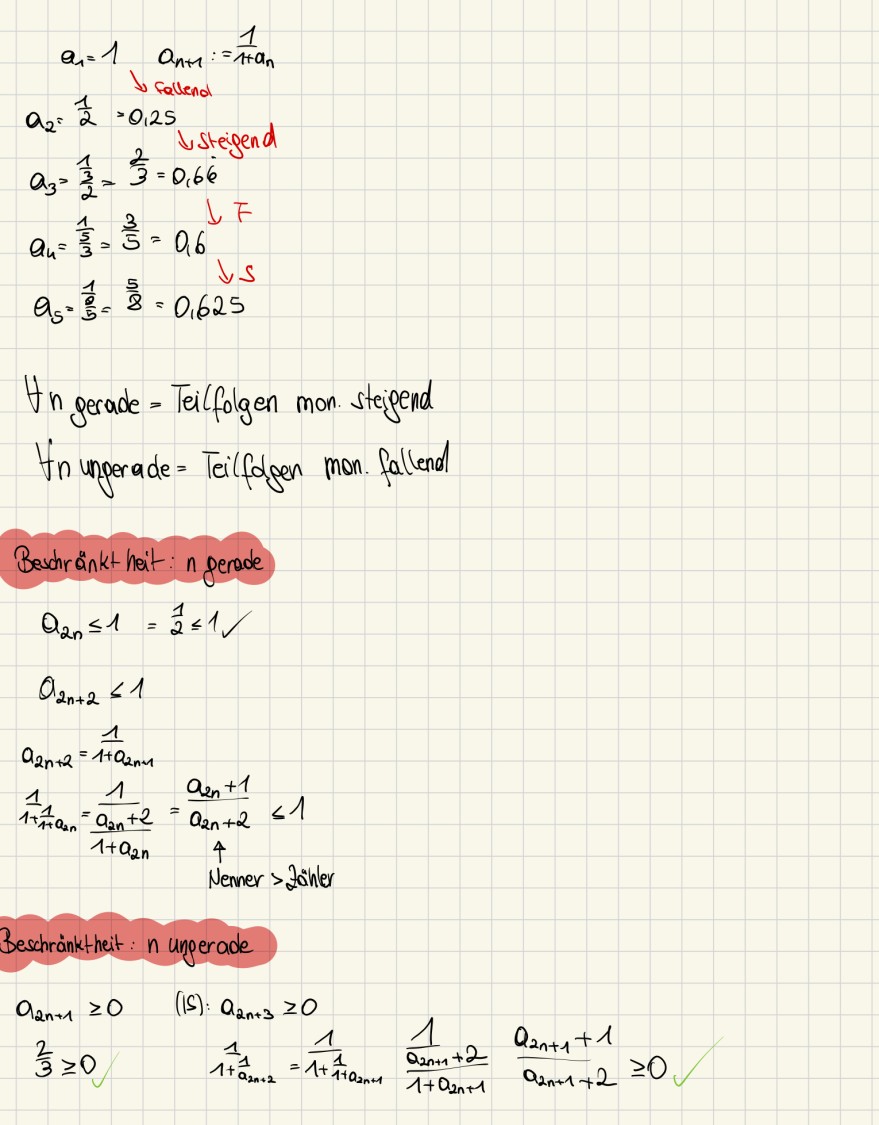 a₁ = 1 aₙ₊₁ := 1/(1+aₙ)
↓ fallend
a₂ = 1/2 = 0,25
↓ steigend
a₃ = 1/(3/2) = 2/3 = 0,66
↓ F
a₄ = 1/(5/3) = 3/5 = 0,6
↓ S
a₅ = 1/(8/5) = 5/8 = 0,625
∀n gerade = Teilfolgen mon. steigend
∀n ungerade = Teilfolgen mon. fallend
Beschränktheit: n gerade
a₂ₙ ≤ 1 = 1/2 ≤ 1 ✓
a₂ₙ₊₂ ≤ 1
a₂ₙ₊₂ = 1/(1+a₂ₙ₊₁)
1/(1+1/(1+a₂ₙ)) = 1/((a₂ₙ+2)/(1+a₂ₙ)) = (a₂ₙ+1)/(a₂ₙ+2) ≤ 1
↑
Nenner > Zähler
Beschränktheit: n ungerade
a₂ₙ₊₁ ≥ 0 (IS): a₂ₙ₊₃ ≥ 0
2/3 ≥ 0 ✓ 1/(1+1/a₂ₙ₊₂) = 1/(1+1/(1+a₂ₙ₊₁)) 1/((a₂ₙ₊₁+2)/(1+a₂ₙ₊₁)) (a₂ₙ₊₁+1)/(a₂ₙ₊₁+2) ≥ 0 ✓